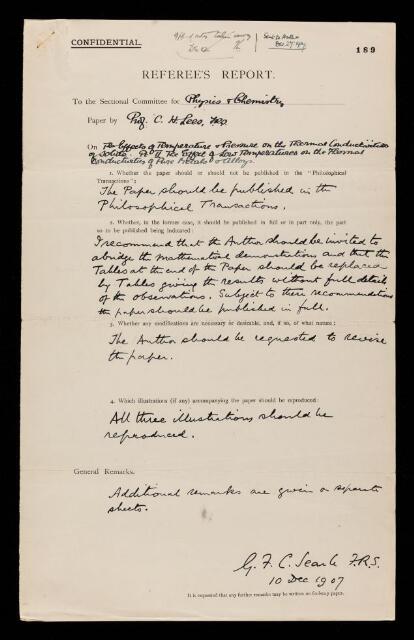 CONFIDENTIAL.
Sent to Author
Dec 27 1907
189
REFEREE'S REPORT.
To the Sectional Committee for Physics & Chemistry
Paper by Prof. C. H. Lees, F.R.S.
On The Effects of Temperature & Pressure on the Thermal Conductivities
of Solids. Pt II The Effect of Low Temperatures on the Thermal
Conductivities of Pure Metals & Alloys.
1. Whether the paper should or should not be published in the "Philosophical
Transactions":
The Paper should be published in the
Philosophical Transactions.
2. Whether, in the former case, it should be published in full or in part only, the part
so to be published being indicated:
I recommend that the Author should be invited to
abridge the mathematical demonstrations and that the
Tables at the end of the Paper should be replaced
by Tables giving the results without full details
of the observations. Subject to these recommendations
the paper should be published in full.
3. Whether any modifications are necessary or desirable, and, if so, of what nature:
The Author should be requested to revise
the paper.
4. Which illustrations (if any) accompanying the paper should be reproduced:
All three illustrations should be
reproduced.
General Remarks.
Additional remarks are given on separate
sheets.
G. F. C. Searle F.R.S.
10 Dec 1907
It is requested that any further remarks may be written on foolscap paper.